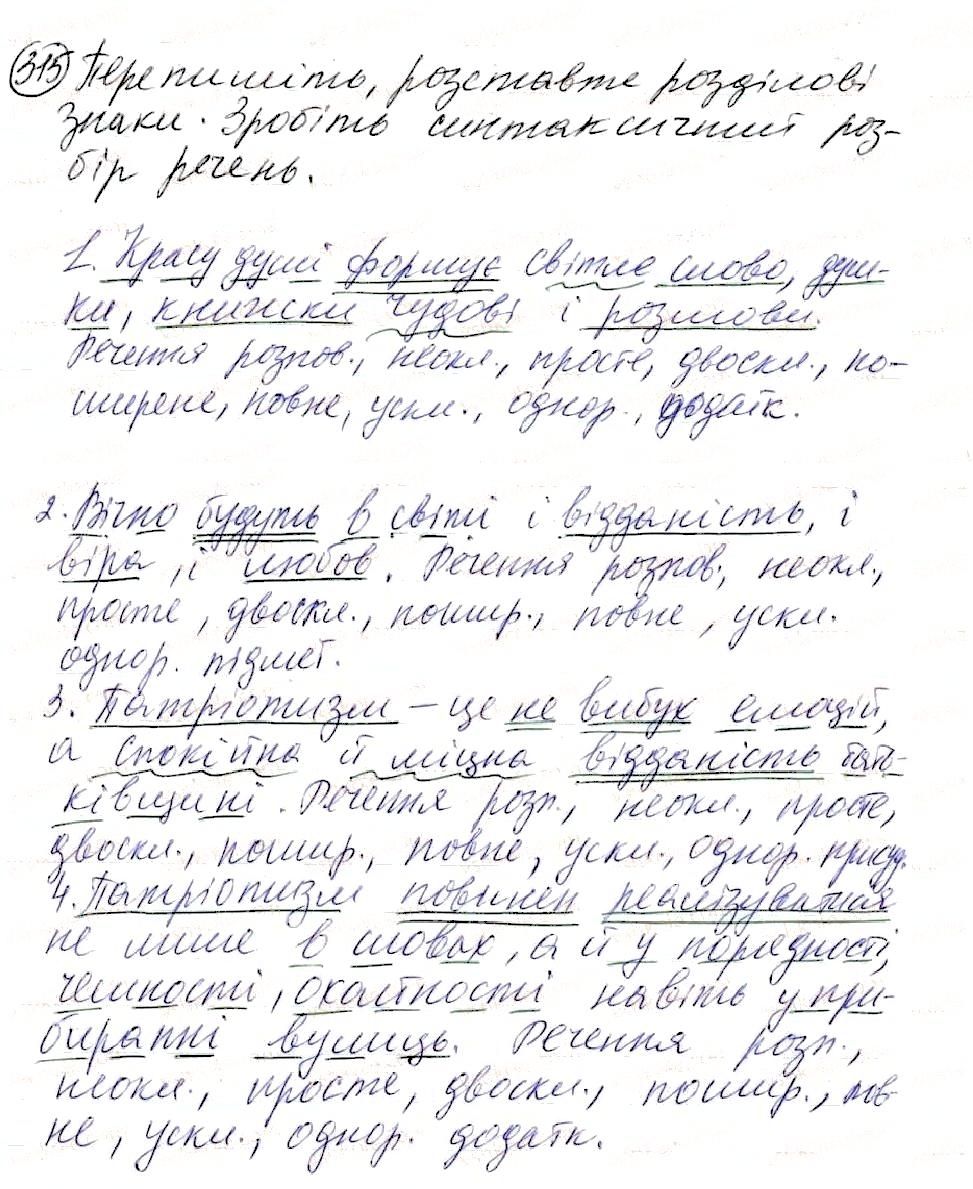 315 Перепишіть, розставте розділові
знаки. Зробіть синтаксичний роз-
бір речень.
1. Красу душі формує світле слово, дум-
ки, книжки чудові і розмови.
Речення розпов., неокл., просте, двоскл., по-
ширене, повне, ускл., однор., додатк.
2. Вічно будуть в світі і відданість, і
віра, і любов. Речення розпов., неокл.,
просте, двоскл., пошир., повне, ускл.
однор. підмет.
3. Патріотизм – це не вибух емоцій,
а спокійна й міцна відданість бать-
ківщині. Речення розп., неокл., просте,
двоскл., пошир., повне, ускл., однор. присуд.
4. Патріотизм повинен реалізуватися
не лише в словах, а й у порядності,
чемності, охайності навіть у при-
биранні вулиць. Речення розп.,
неокл., просте, двоскл., пошир., пов-
не, ускл., однор. додатк.